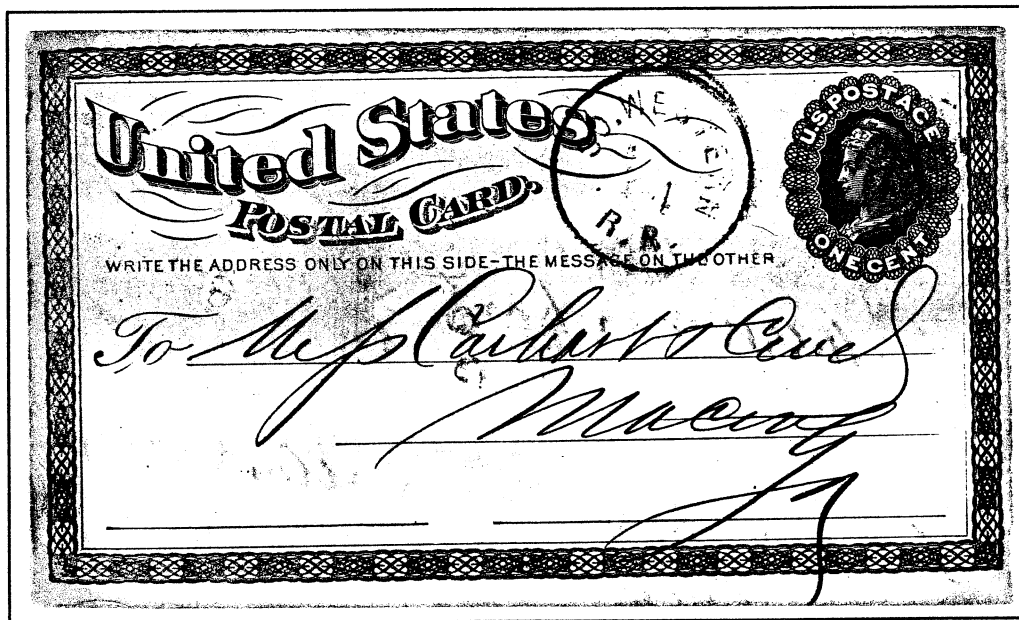 United States
POSTAL CARD.
U.S. POSTAGE
ONE CENT
R. R.
WRITE THE ADDRESS ONLY ON THIS SIDE-THE MESSAGE ON THE OTHER
To Mess Carhart &
Macon